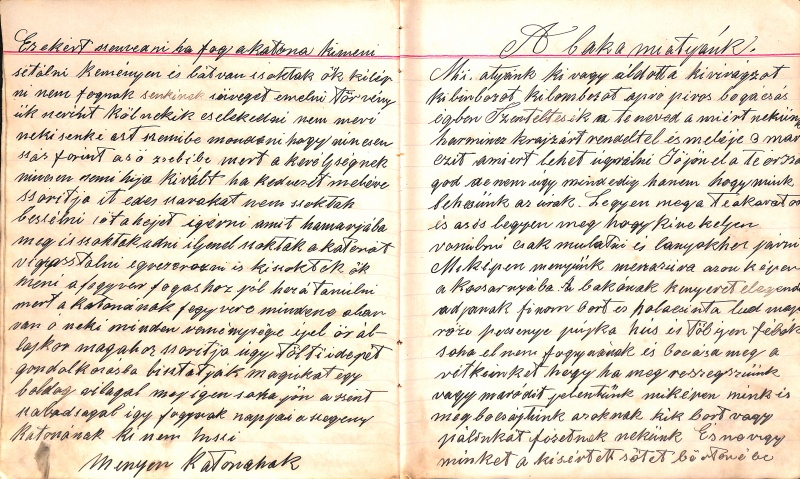 Ezekért szenvedni ha fog a katona kimeni
sétálni keményen és bátvan szoktak ők kilép
ni nem fognak senkinek süveget emelni Törvény
ük nevént Köl nekik cselekedni nem meri
neki senki azt szemibe mondani hogy nincsen
sás forint a só zsebibe mert a kevélységnek
nincsen semi hija kivált ha kedvezét meléve
szorítja it édes szavaket nem szoktak
beszélni
meg is szoktak adni ilyent szoktak a katonát
vigasztalni egyszer
meni a fegyver fogashoz jol hozá tanulni
mert a katonának fegyvere mindene ahan
van ő neki minden reménysége éjel őr ál
láskor magahoz szorítja úgy tölti idejét
gondolkozasba magukat egy
boldog világal maj igen soka jön a szent
szabadságal igy fogynak napjai a szegeny
katonának ki nem hiszi
Menyen Katonahak
A baka miatyánk.
Mi atyánk ki vagy áldott a kivirágzot
kibimbozot kilombozot apro piros bogácsás
égben Szenteltesik a te neved a miért nekünk
harmincz krajzárt rendeltél és meléje 3 mar
ezit amiért lehet ugrálni Jöjön el a te orsza
god de nem úgy mind edig hanem hogy mink
lehesünk az urak. Legyen meg a te akarat od
és az is legyen meg hogy kine keljen
vonulni csak mulatni és lanyokhoz járni
Miképen menyünk menaziva azon képen
a kocsarnyába. A bakának kenyeret elegendö
adjanak finom bort és palacsinta lud maj
róze pecsenye pujka hus és több ijen félék
soha el nem fogynának és bocása meg a
vétkeinket hogy ha meg részegszünk
vagy maródit jelentünk miképen mink is
meg bocsájtunk azoknak kik bort vagy
pálinkát fizetnek nekünk És na vigy
minket a kisértett sötét börtönébe